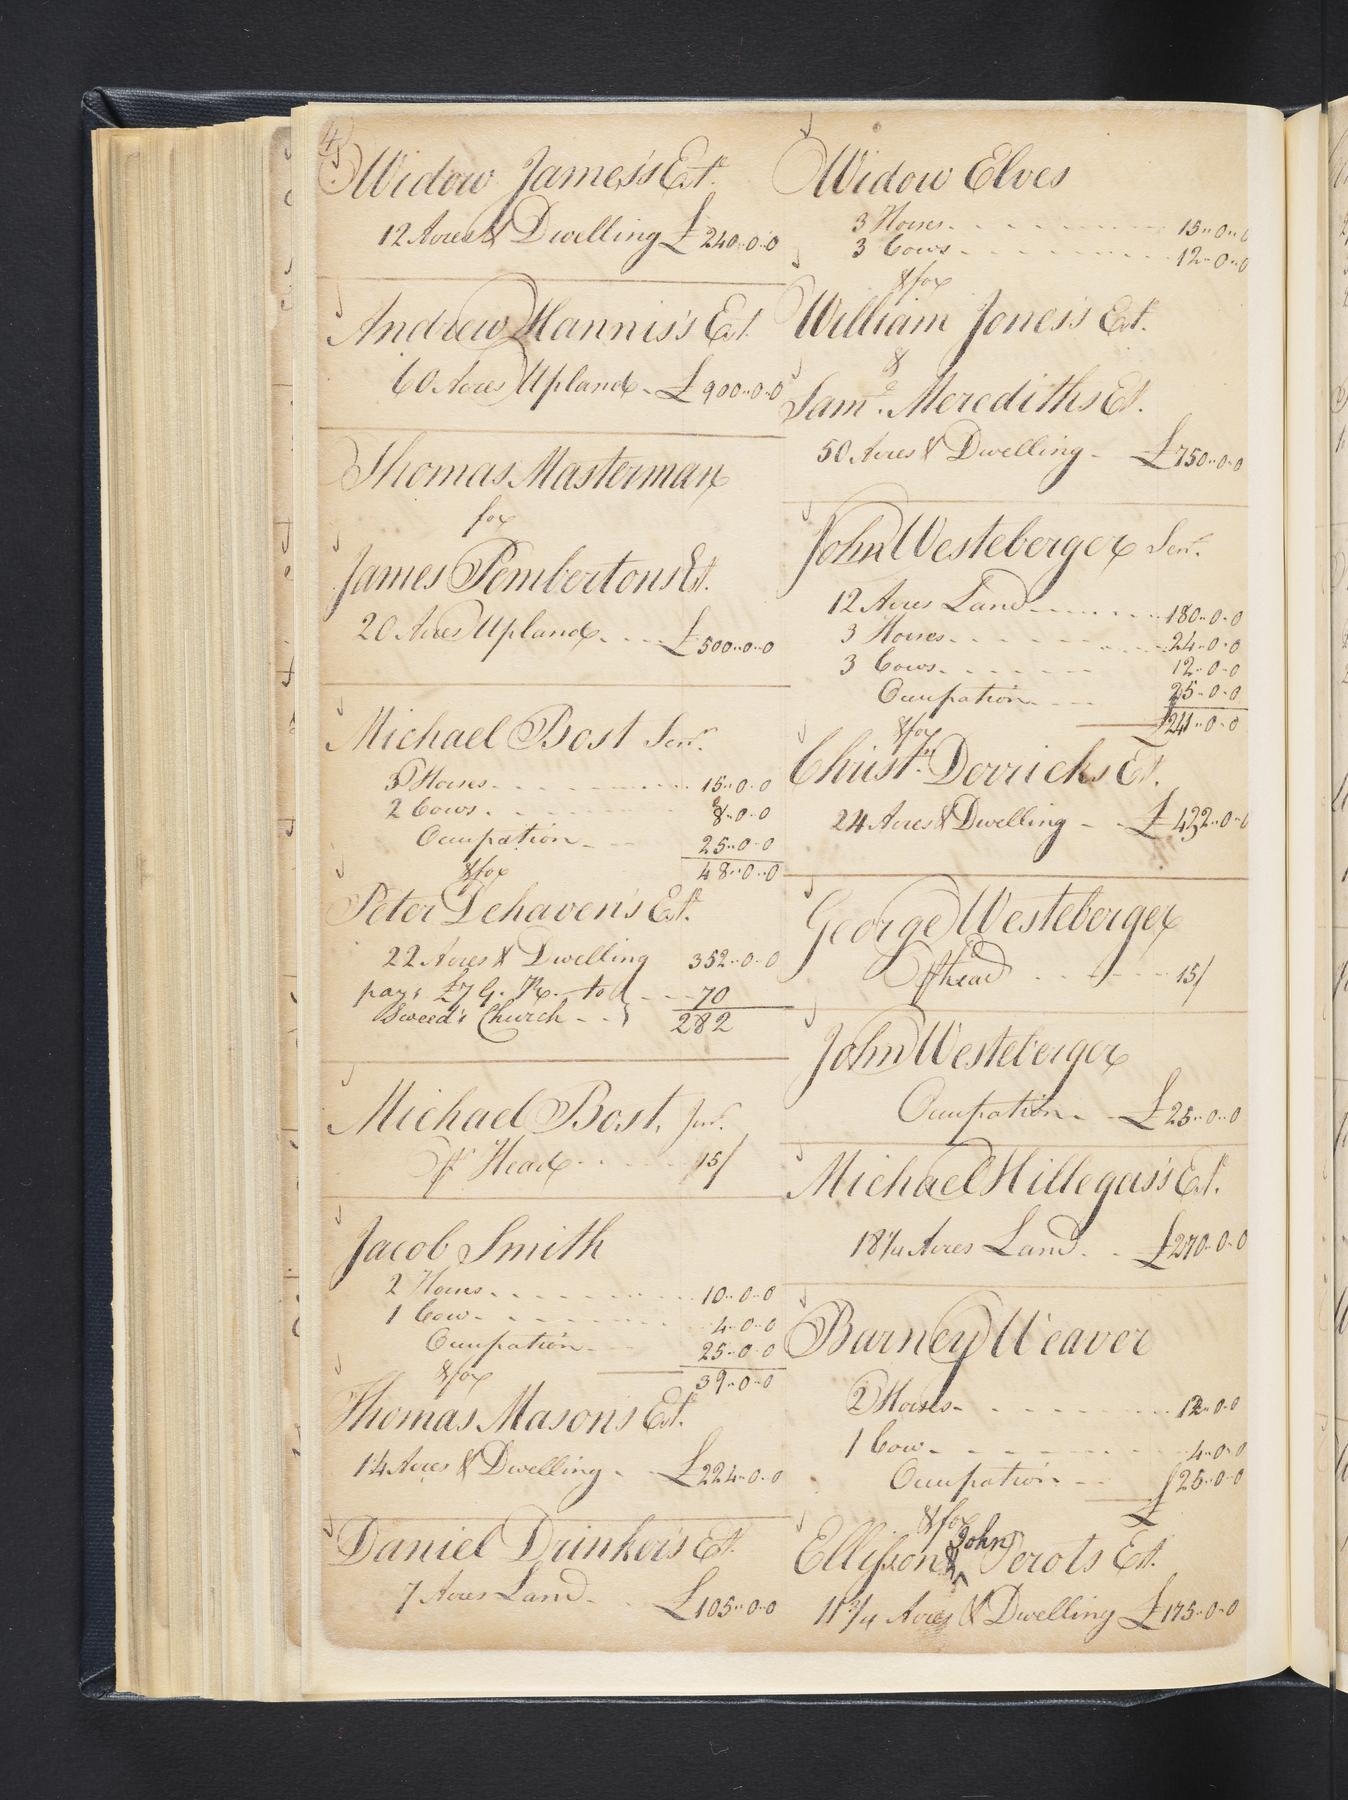 4
Widow James's Estt.
12 Acres & Dwelling £240..0..0
Andrew Hannis's Est.
60 Acres Upland - £900..0..0
Thomas Masterman
for
James Pembertons Et.
20 Acres Upland - - - £500..0..0
Michael Bost Senr.
3 Horses - - - 15..0..0
2 Cows - - - 8..0..0
Occupation - - - 25..0..0
48..0..0
& for
Peter Dehaven's Estt.
22 Acres & Dwelling 352..0..0
pays £7 G. R. to } - - - 70
Sweed's Church - - } 282
Michael Bost, Junr.
pr Head - - - 15/
Jacob Smith
2 Horses - - - 10..0..0
1 Cow - - - 4..0..0
Occupation - - - 25..0..0
& for 39..0..0
Thomas Mason's Estt.
14 Acres & Dwelling - - £224..0..0
Daniel Drinker's Est.
7 Acres Land - - £105..0..0
Widow Elves
3 Horses - - - 15..0..0
3 Cows - - - 12..0..0
& for
William Jones's Est.
&
Saml. Merediths Et.
50 Acres & Dwelling - £750..0..0
John Westeberger Senr.
12 Acres Land - - - 180..0..0
3 Horses - - - 24..0..0
3 Cows - - - 12..0..0
Occupation - - - 25..0..0
£241..0..0
& for
Christn. Derricks Et.
24 Acres & Dwelling - - £432..0..0
George Westeberger
pr head - - - 15/
John Westeberger
Occupation - - £25..0..0
Michael Hillegas's Estt.
18 1/4 Acres Land - - £270..0..0
Barney Weaver
2 Horses - - - 12..0..0
1 Cow - - - 4..0..0
Occupation - - - 25..0..0
£
& for
John
Ellisson & Perots Est.
11 3/4 Acres & Dwelling £175..0..0